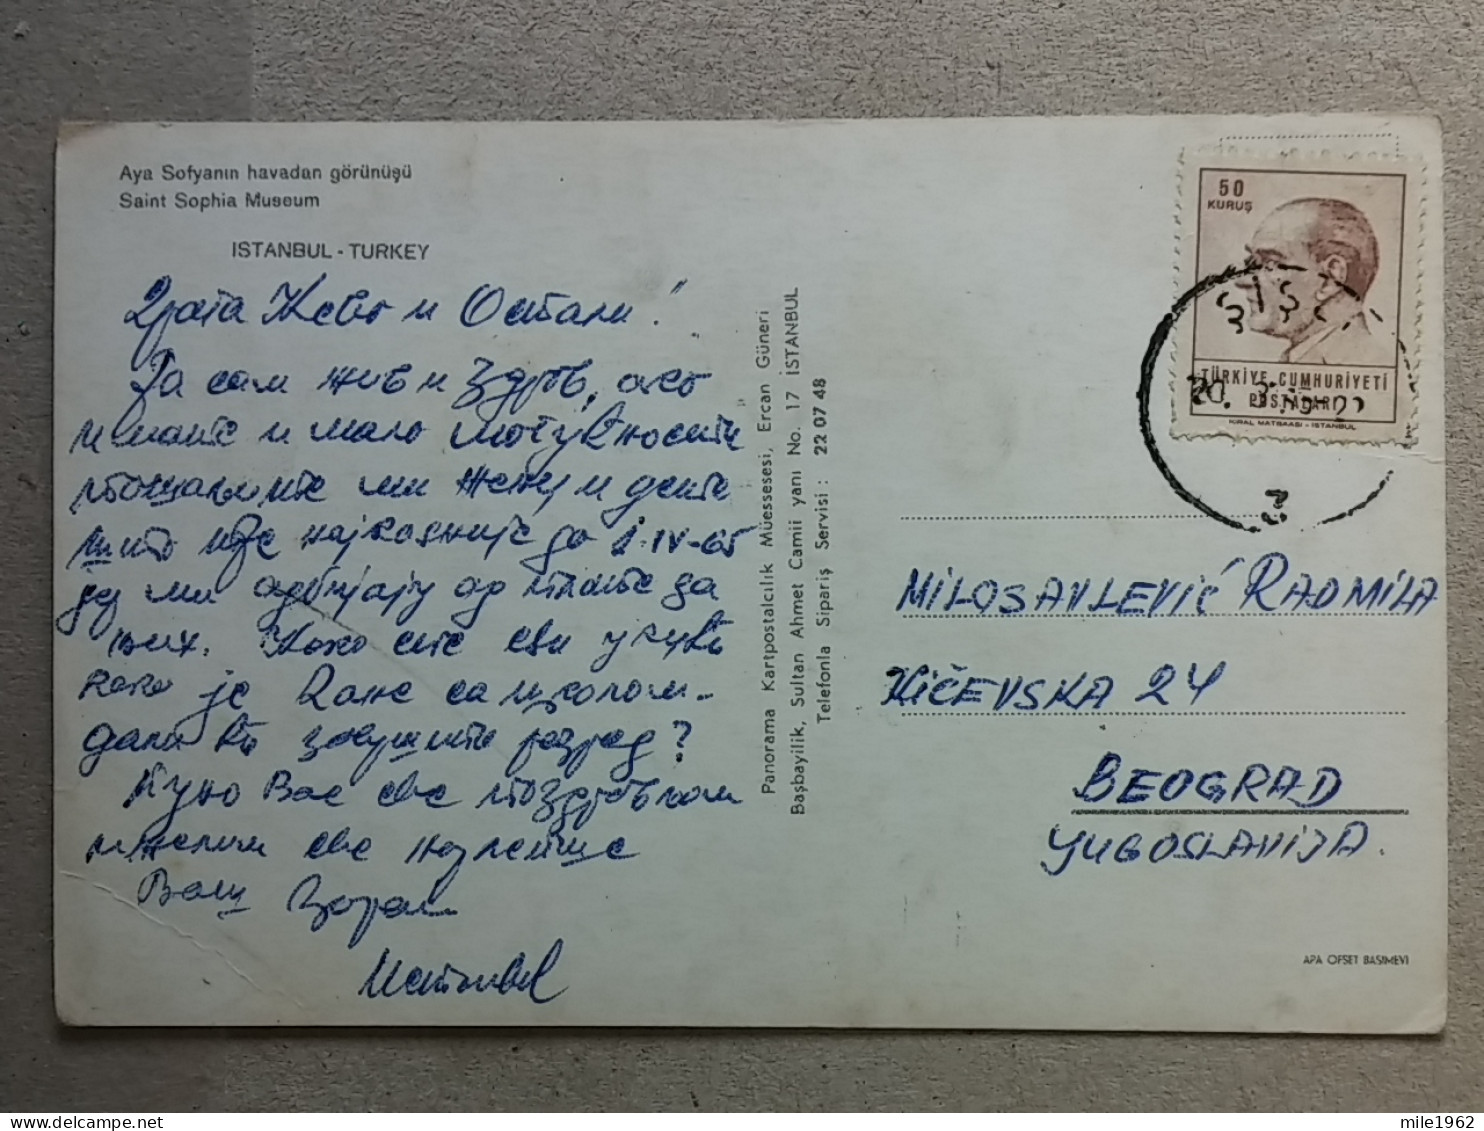 Aya Sofyanın havadan görünüşü
Saint Sophia Museum
ISTANBUL - TURKEY
Драга Кево и Остали!
Ја сам жив и здрав, ако
имате и мало могућности
пошаљите ми жену и дете
што пре најкасније до 1-IV-65
јер ми одбијају од плате за
њих. Како сте сви у кући
како је Капе са школом.
дали ће завршити разред?
Пуно Вас све поздрављам
и желим све најлепше
Ваш Зоран
Истанбул
Panorama Kartpostalcılık Müessesesi, Ercan Güneri
Başbayilik, Sultan Ahmet Camii yanı No. 17 İSTANBUL
Telefonla Sipariş Servisi : 22 07 48
50
KURUŞ
TÜRKİYE CUMHURİYETİ
POSTALARI
KIRAL MATBAASI - ISTANBUL
ŞİŞLİ
20. 3.
MILOSAVLEVIĆ RADMILA
KIČEVSKA 24
BEOGRAD
YUGOSLAVIJA.
APA OFSET BASIMEVİ
mile1962